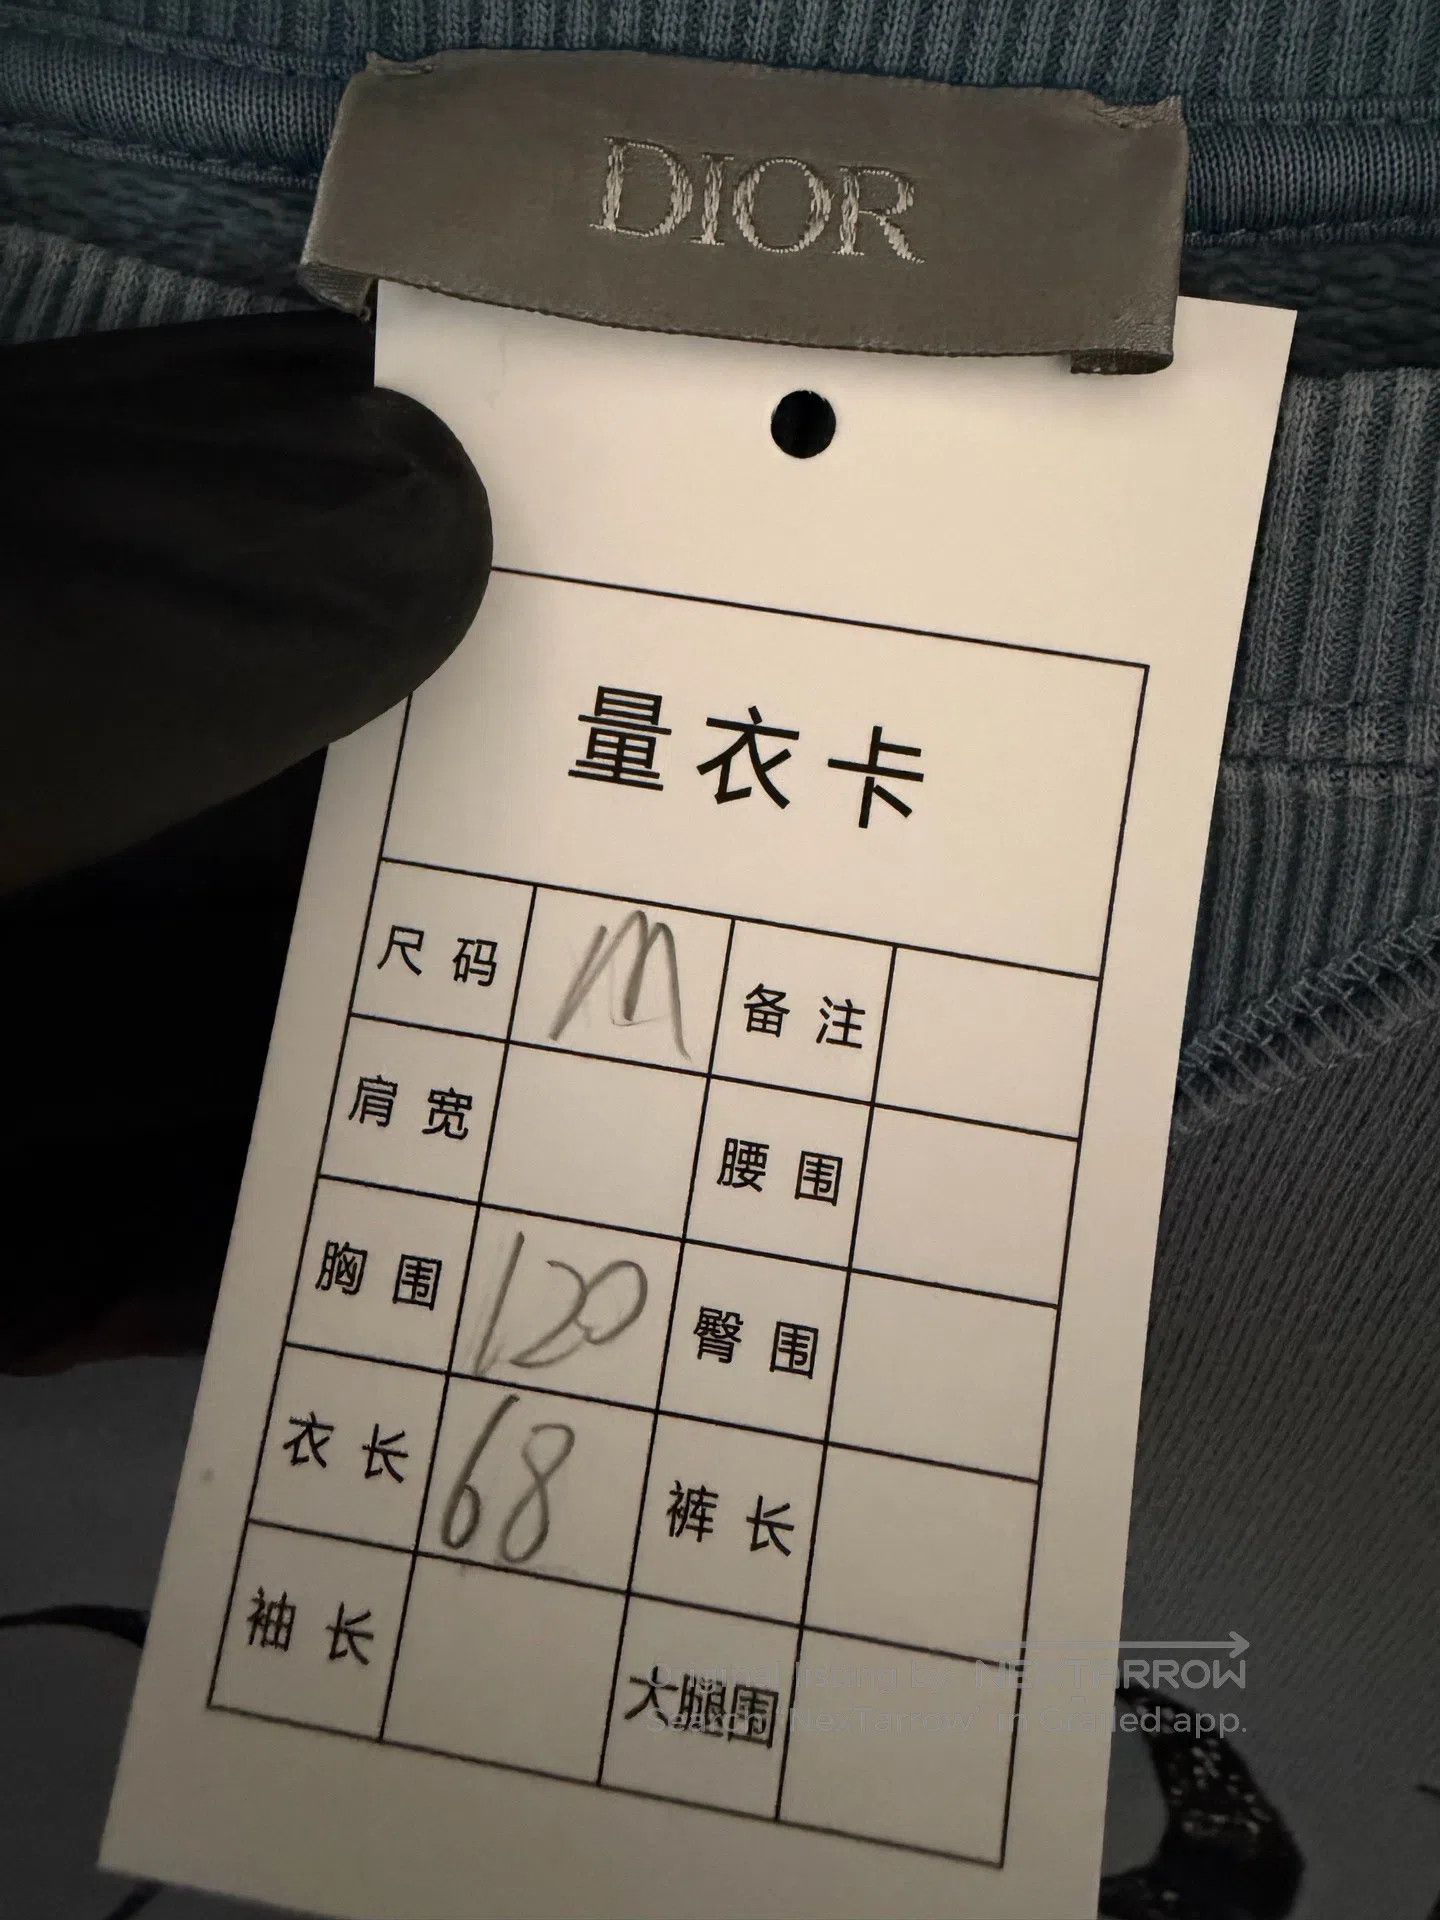 DIOR
量衣卡
尺码 M 备注
肩宽 腰围
胸围 120 臀围
衣长 68 裤长
袖长 大腿围
Original listing by NEXTARROW
Search "NexTarrow" in Grailed app.